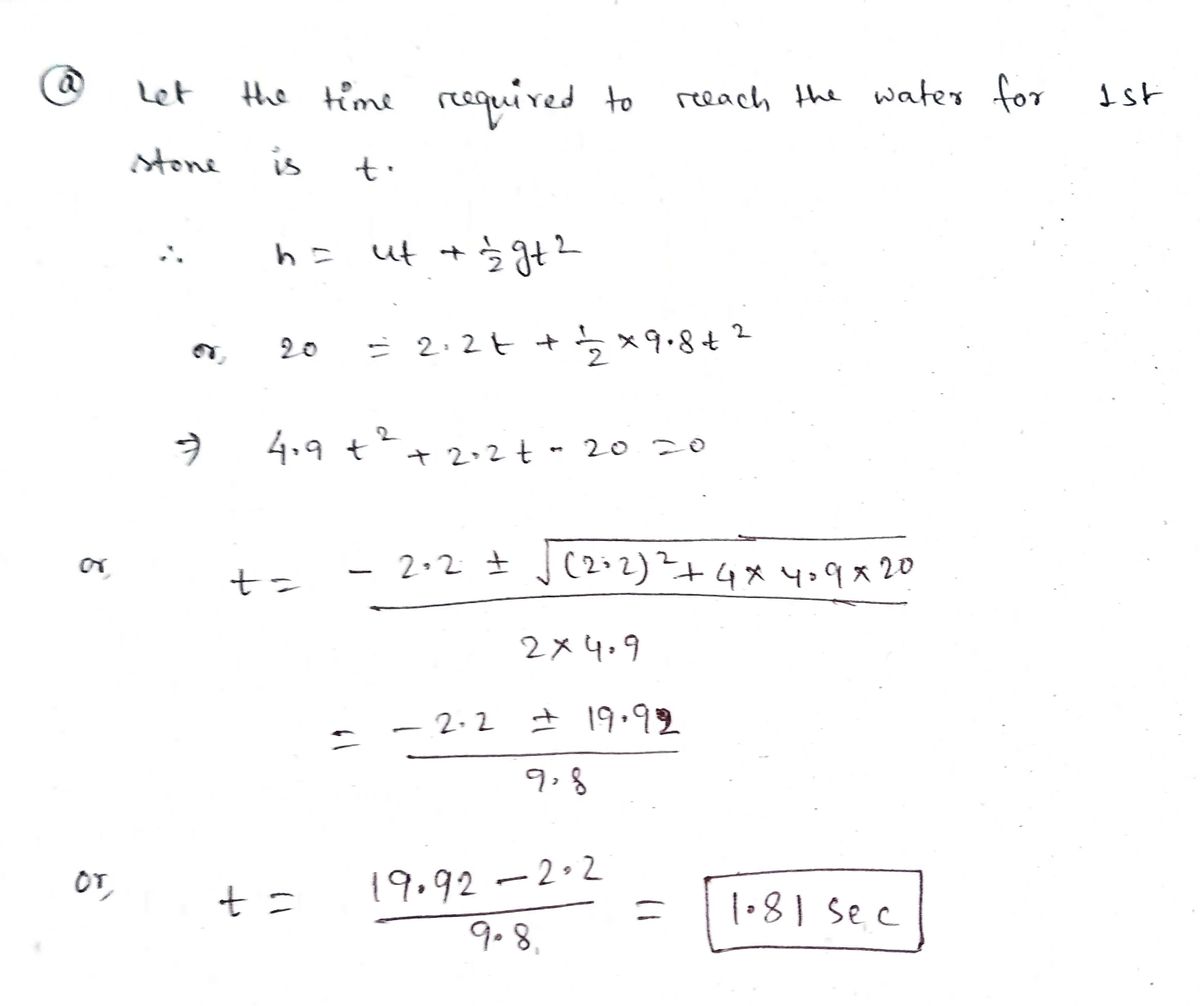 ⓐ Let the time required to reach the water for 1st
stone is t.
∴ h = ut + ½gt²
or, 20 = 2.2t + ½ × 9.8t²
⇒ 4.9t² + 2.2t - 20 = 0
or, t = (-2.2 ± √((2.2)² + 4 × 4.9 × 20)) / (2 × 4.9)
= (-2.2 ± 19.92) / 9.8
or, t = (19.92 - 2.2) / 9.8 = 1.81 sec